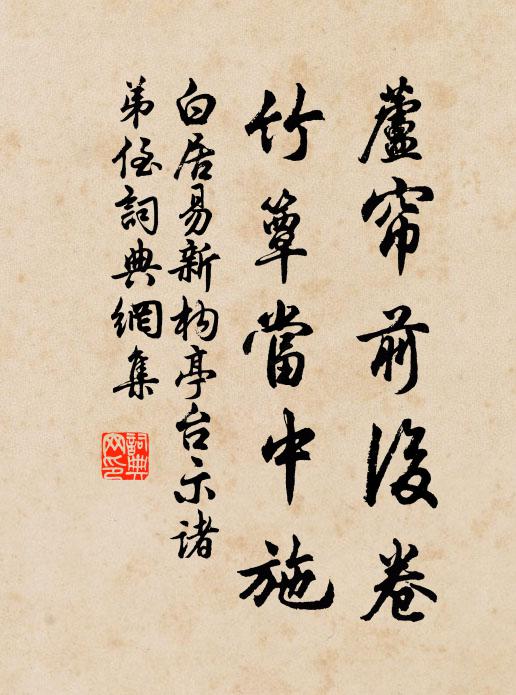 蘆帘前後卷
竹簟當中施
白居易新构亭台示诸
弟侄詞典網集
詞典
网印